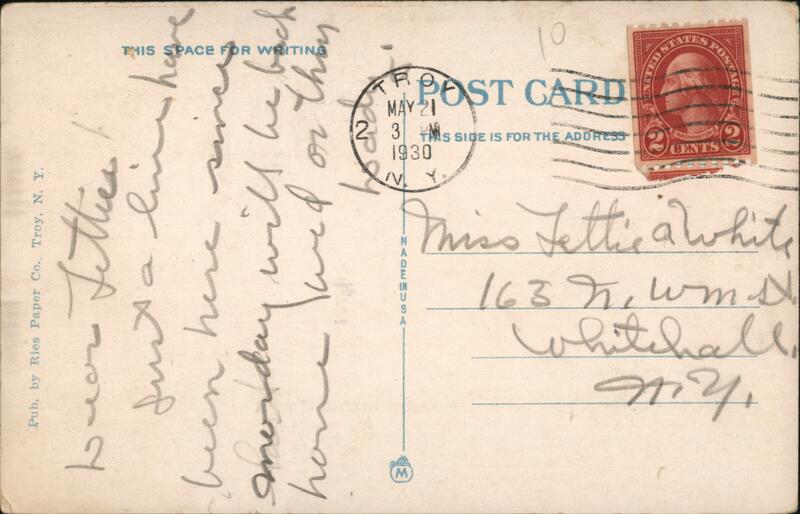 THIS SPACE FOR WRITING
Dear Lettie
Just a line have
been here since
Monday will be back
home Wed or Thur
POST CARD
THIS SIDE IS FOR THE ADDRESS
TROY
MAY 21
3 PM
1930
N. Y.
2
10
UNITED STATES POSTAGE
2 CENTS 2
Miss Lettie A White
163 N. Wm St.
Whitehall.
N.Y.
MADE IN USA
M
Pub. by Ries Paper Co., Troy, N. Y.